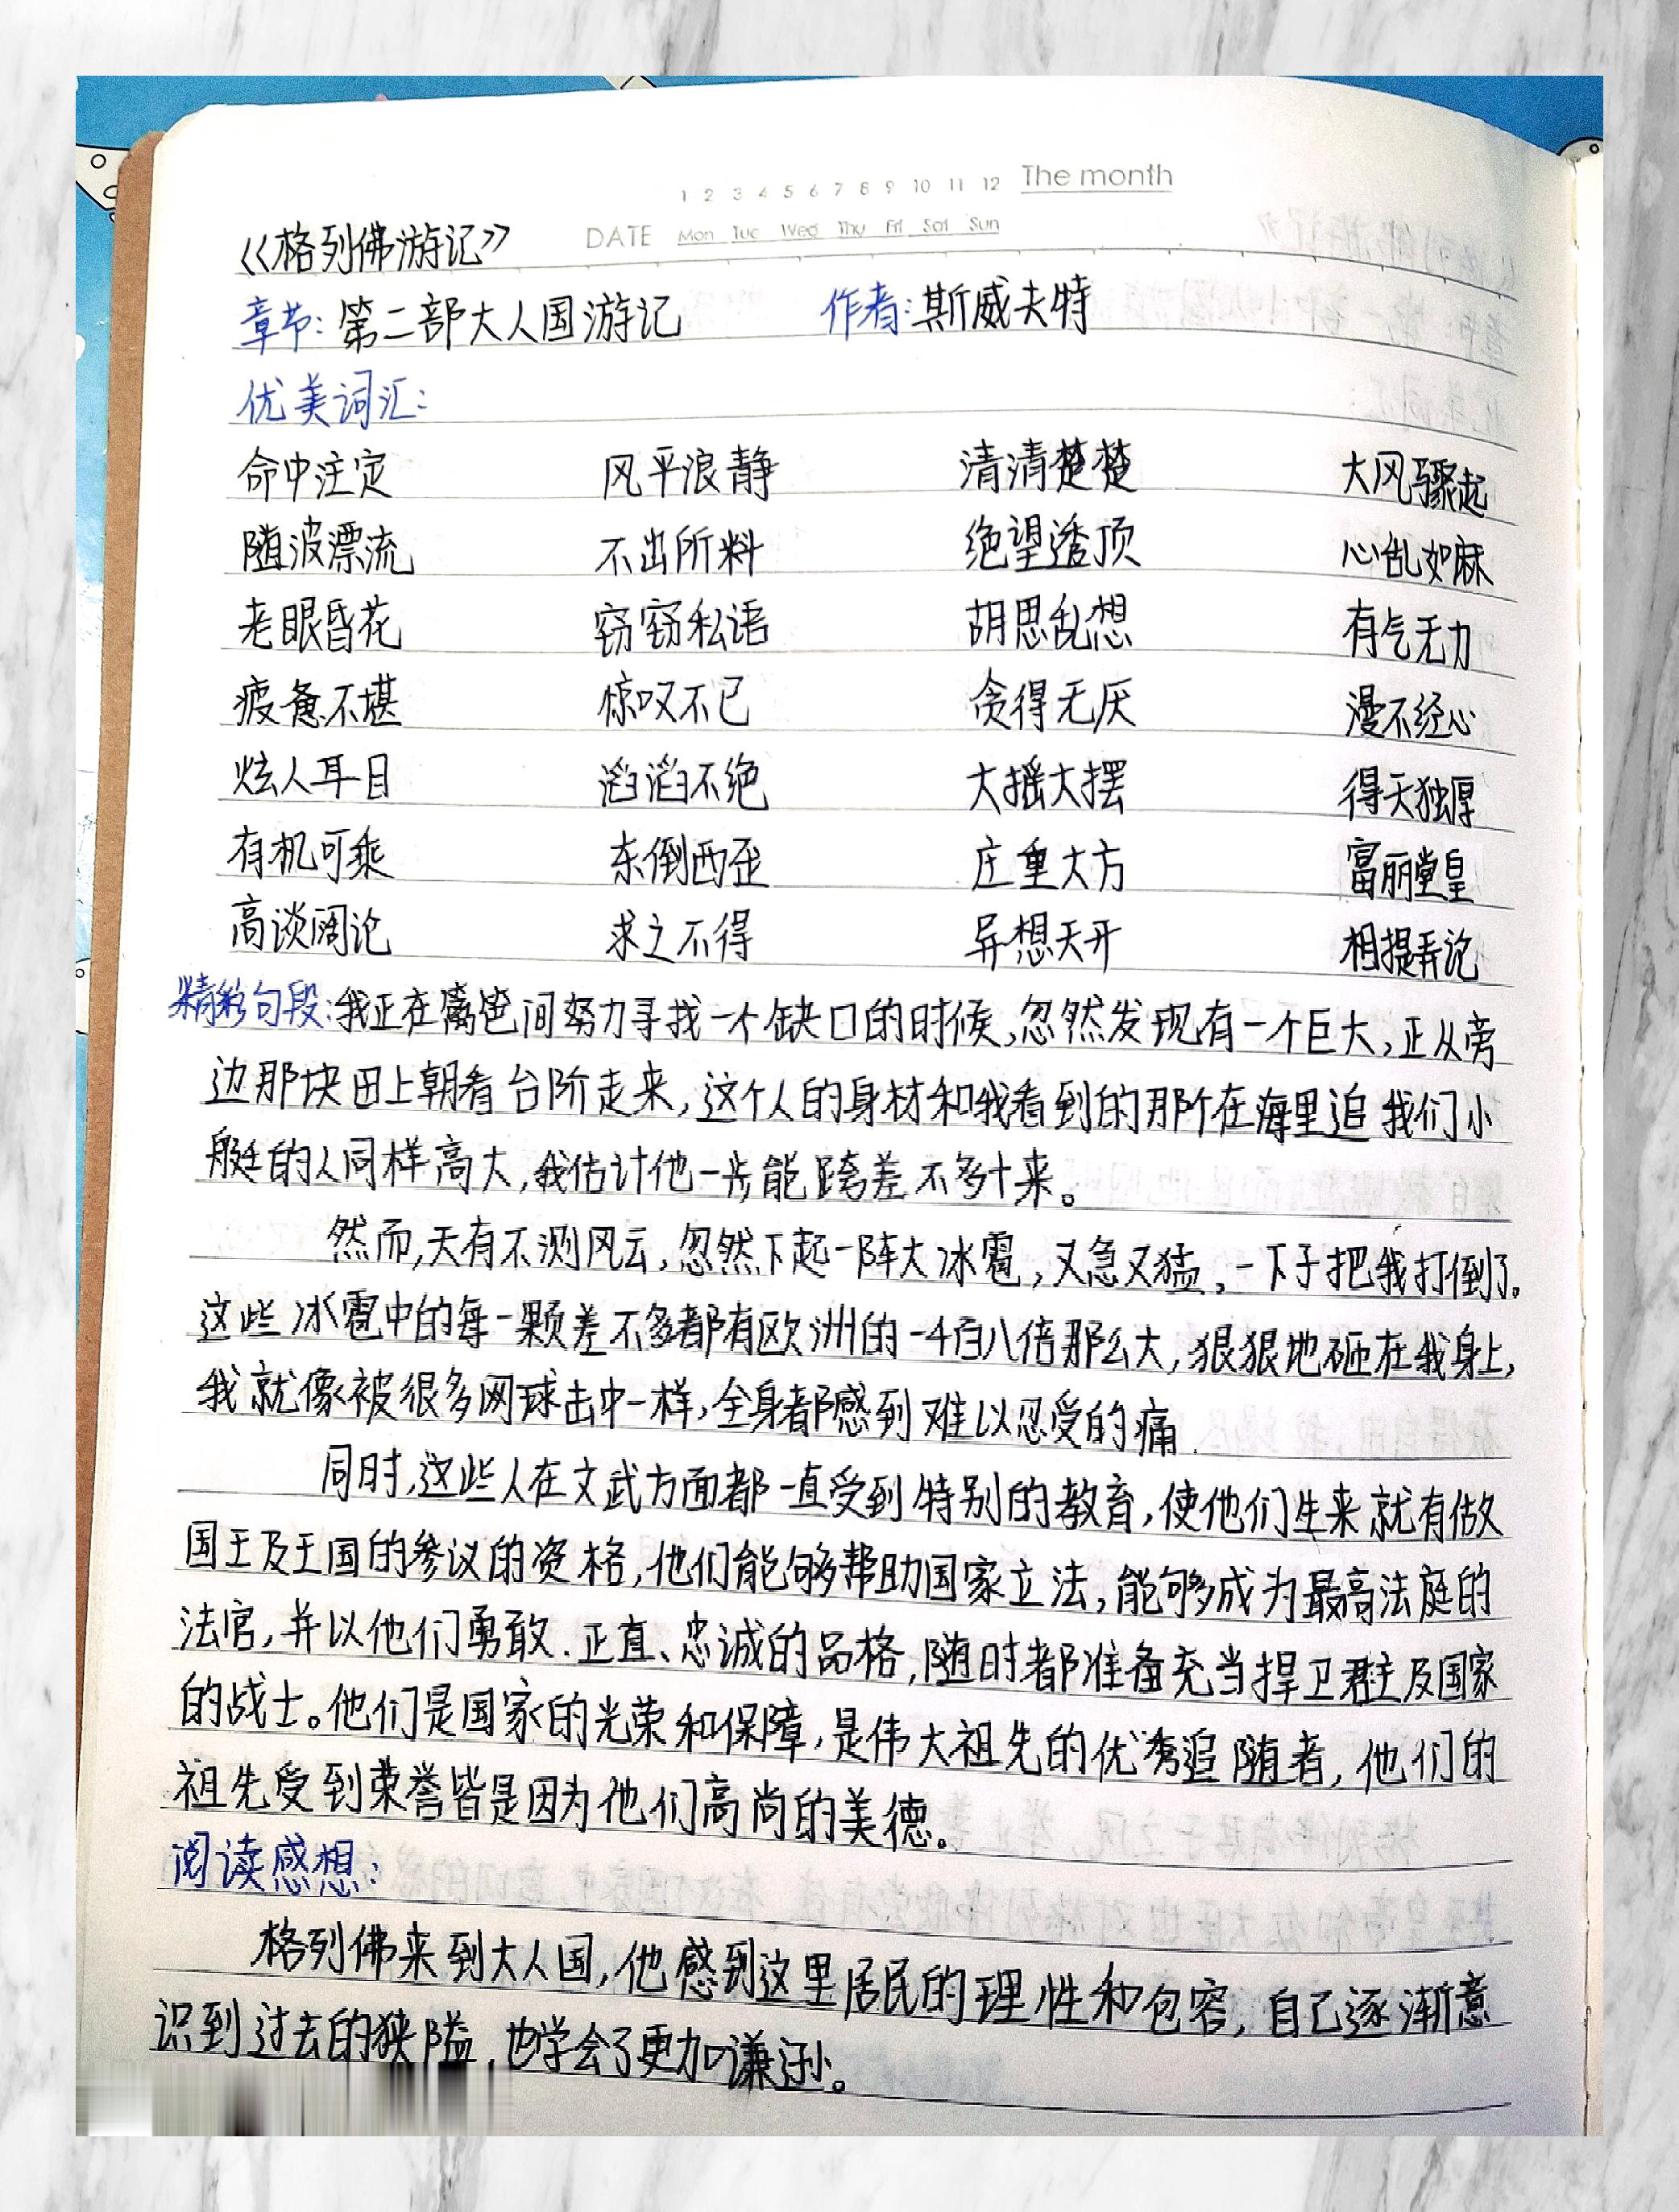 1 2 3 4 5 6 7 8 9 10 11 12 The month
《格列佛游记》 DATE Mon Tue Wed Thu Fri Sat Sun
章节:第二部大人国游记 作者:斯威夫特
优美词汇:
命中注定 风平浪静 清清楚楚 大风骤起
随波漂流 不出所料 绝望透顶 心乱如麻
老眼昏花 窃窃私语 胡思乱想 有气无力
疲惫不堪 惊叹不已 贪得无厌 漫不经心
炫人耳目 滔滔不绝 大摇大摆 得天独厚
有机可乘 东倒西歪 庄重大方 富丽堂皇
高谈阔论 求之不得 异想天开 相提并论
精彩句段:我正在篱笆间努力寻找一个缺口的时候,忽然发现有一个巨大,正从旁
边那块田上朝着台阶走来,这个人的身材和我看到的那个在海里追我们小
艇的人同样高大,我估计他一步能跨差不多十来。
然而,天有不测风云,忽然下起一阵大冰雹,又急又猛,一下子把我打倒了。
这些冰雹中的每一颗差不多都有欧洲的一千百八倍那么大,狠狠地砸在我身上,
我就像被很多网球击中一样,全身都感到难以忍受的痛.
同时,这些人在文武方面都一直受到特别的教育,使他们生来就有做
国王及王国的参议的资格,他们能够帮助国家立法,能够成为最高法庭的
法官,并以他们勇敢.正直、忠诚的品格,随时都准备充当捍卫君主及国家
的战士。他们是国家的光荣和保障,是伟大祖先的优秀追随者,他们的
祖先受到荣誉皆是因为他们高尚的美德。
阅读感想:
格列佛来到大人国,他感到这里居民的理性和包容,自己逐渐意
识到过去的狭隘,也学会了更加谦逊。